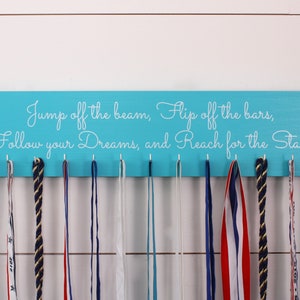 Jump off the beam, Flip off the bars,
Follow your Dreams, and Reach for the Sta